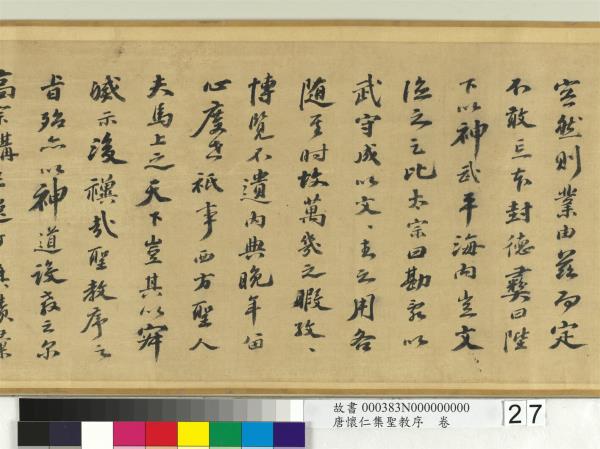 然則業由茲而定
不敢忘本封德彝曰陛
下以神武平海內豈文
德之足比太宗曰勘亂以
武守成以文、武之用各
隨其時故萬幾之暇孜、
博覽不遺內典晚年留
心度世祇事西方聖人
夫馬上之天下豈其以寂
滅示後禩哉聖教序之
旨殆亦以神道設教云爾
高宗
故書 000383N000000000
唐懷仁集聖教序 卷
27